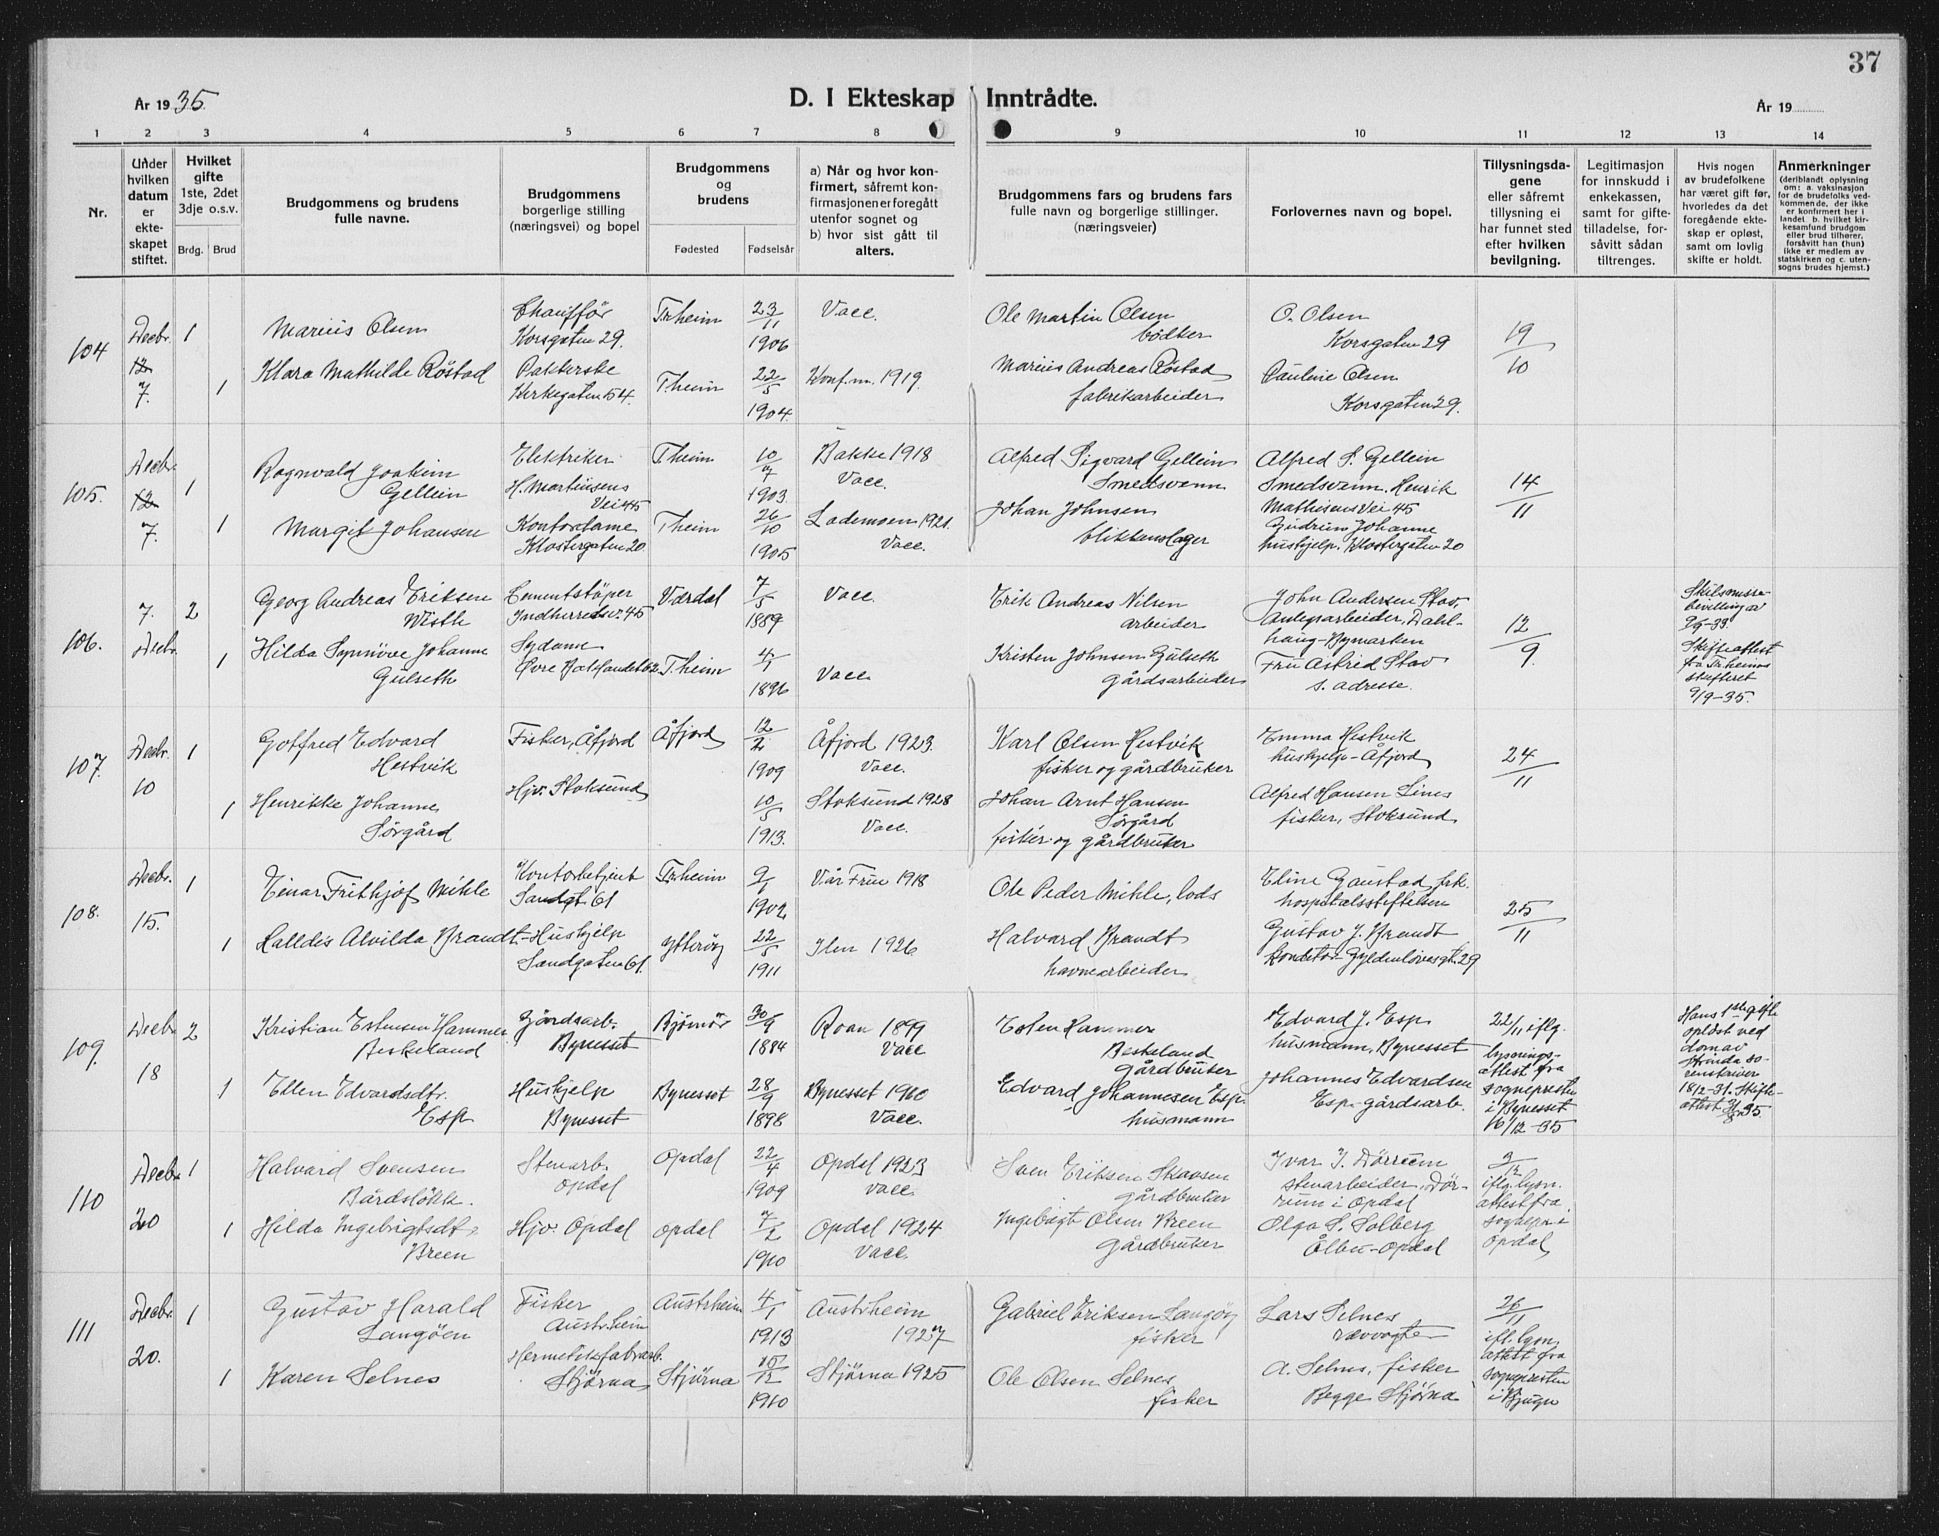 37
År 1935.
D. I Ekteskap Inntrådte.
År 19
1 2 3 4 5 6 7 8 9 10 11 12 13 14
Nr.
Under hvilken datum er ekte-skapet stiftet.
Hvilket gifte 1ste, 2det 3dje o.s.v.
Brdg. Brud
Brudgommens og brudens fulle navne.
Brudgommens borgerlige stilling (næringsvei) og bopel
Brudgommens og brudens
Fødested Fødselsår
a) Når og hvor kon-firmert, såfremt kon-firmasjonen er foregått utenfor sognet og b) hvor sist gått til alters.
Brudgommens fars og brudens fars fulle navn og borgerlige stillinger. (næringsveier)
Forlovernes navn og bopel.
Tillysningsda-gene eller såfremt tillysning ei har funnet sted efter hvilken bevilgning.
Legitimasjon for innskudd i enkekassen, samt for gifte-tilladelse, for-såvitt sådan tiltrenges.
Hvis nogen av brudefolkene har været gift før, hvorledes da det foregående ekte-skap er opløst, samt om lovlig skifte er holdt.
Anmerkninger (deriblandt oplysning om: a. vaksinasjon for de brudefolks ved-kommende, der ikke er konfirmert her i landet. b. hvilket kir-kesamfund brudgom eller brud tilhører, forsåvitt han (hun) ikke er medlem av statskirken og c. uten-sogns brudes hjemst.)
104 Decbr. 12 7. 1
Marius Olsen
Chauffør
Korsgaten 29.
Tr.heim
23/11 1906
Vacc.
Ole Martin Olsen
bødker
O. Olsen
Korsgaten 29
19/10
1
Klara Mathilde Røstad
Pakkerske
Kirkegaten 54.
T.heim
22/5 1904
Konf.m. 1919.
Marius Andreas Røstad
fabrikarbeider
Pauline Olsen
Korsgaten 29.
105. Decbr. 12 7. 1
Ragnvald Joakim
Gellein
Elektriker
H. Martinsens
Vei 45
T.heim
10/7 1903
Bakke 1918
Vacc.
Alfred Sigvard Gellein
Smedsvenn
Alfred S. Gellein
Smedsvenn. Henrik
Mathisens Vei 45
14/11
1
Margit Johansen
Kontordame
Klostergaten 20
T.heim
26/10 1905
Lademoen 1921.
Vacc.
Johan Johnsen
blikkenslager
Gudrun Johanne
hushjelp. Klostergaten 20
106. 7. Decbr. 2
Georg Andreas Eriksen
Wisth
Cementstøper
Indherredsv. 45
Værdal
7/5 1889
Vacc.
Erik Andreas Nilsen
arbeider
John Andersen Stav,
Anlegsarbeider, Dahl-
haug-Bymarken
12/9.
Skilsmisse
bevilling av
Skifteattest
fra Tr.heims
skifteret
9/9-35.
1
Hilda Synnøve Johanne
Gulseth
Sydame
Øvre Bakklandet 62
T.heim
4/1 1896
Vacc.
Kristen Johnsen Gulseth
Gårdsarbeider
Fru Astrid Stav
s. adresse.
107. Decbr. 10 1
Gotfred Edvard
Hestvik
Fisker, Åfjord
Åfjord
12/2 1909
Åfjord 1923.
Vacc.
Karl Olsen Hestvik
fisker og gårdbruker
Emma Hestvik
hushjelp - Åfjord
24/11
1
Henrikke Johanne
Sørgård
Hjv. Stoksund
10/5 1913.
Stoksund 1928
Vacc.
Johan Arnt Hansen
Sørgård
fisker og gårdbruker
Alfred Hansen Lines
fisker, Stoksund
108. Decbr. 15. 1
Einar Frithjof Mihle
Kontorbetjent
Sandgt. 61
Tr.heim
9/1 1902
Vår Frue 1918
Ole Peder Mihle, lods
Eline Gaustad, frk.
hospitalsstiftelsen
25/11
1
Halldis Alvilda Brandt
Hushjelp
Sandgaten 61.
Ytterøy
22/5 1911
Ilen 1926
Halvard Brandt
havnearbeider
Gustav J. Brandt
konditor - Gyldenløvesgt. 29
109. Decbr. 18 2
Kristian Estensen Hammer
Beskeland
Gårdsarb.
Bynesset
Bjørnør
30/9 1884
Roan 1899
Vacc
Esten Hammer
Beskeland
Gårdbruker
Edvard J. Esp
husmann, Bynesset
22/11 iflg.
lysnings-
attest fra
sognepresten
i Bynesset
16/12-35
Hans 1ste gifte
opløst ved
dom av
Strinda so-
renskriver
18/12-31. Skifte-
attest
1
Ellen Edvardsdtr.
Esp
Hushjelp
Bynesset
Bynesset
28/9 1898
Bynesset 1910
Vacc.
Edvard Johannesen Esp
husmann
Johannes Edvardsen
Esp - gårdsarb.
110 Decbr. 20 1
Halvard Svensen
Bårdsløkk.
Stenarb.
Opdal
Opdal
22/4 1909
Opdal 1923
Vacc.
Sven Eriksen Skavsen
gårdbruker
Ivar I. Dørrum
stenarbeider, Dør-
rum i Opdal
iflg. lysn.
attest fra
sognepr. i
Opdal
1
Hilda Ingebrigtsdt.
Breen
Hjv. Opdal
Opdal
7/2 1910
Opdal 1924
Vacc.
Ingebrigt Olsen Breen
Gårdbruker
Olga S. Solberg
Ålbu - Opdal
111 Decbr. 20. 1
Gustav Harald
Langøen
Fisker
Austrheim
Austrheim
4/1 1913
Austrheim
1927
Gabriel Eriksen Langøy
fisker
Lars Selnes
rævvogter
26/11
ifl. lysn.
attest fra
sognepresten
i Bjugn
1
Karen Selnes
Hermetikfabr.arb.
Stjørna
Stjørna
15/12 1910
Stjørna 1925
Ole Olsen Selnes
fisker
A. Selnes, fisker
Begge Stjørna